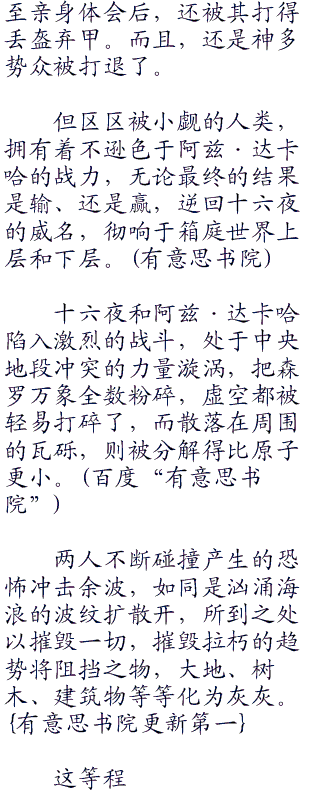 至亲身体会后，还被其打得
丢盔弃甲。而且，还是神多
势众被打退了。
但区区被小觑的人类，
拥有着不逊色于阿兹·达卡
哈的战力，无论最终的结果
是输、还是赢，逆回十六夜
的威名，彻响于箱庭世界上
层和下层。(有意思书院)
十六夜和阿兹·达卡哈
陷入激烈的战斗，处于中央
地段冲突的力量漩涡，把森
罗万象全数粉碎，虚空都被
轻易打碎了，而散落在周围
的瓦砾，则被分解得比原子
更小。(百度“有意思书
院”)
两人不断碰撞产生的恐
怖冲击余波，如同是汹涌海
浪的波纹扩散开，所到之处
以摧毁一切，摧毁拉朽的趋
势将阻挡之物，大地、树
木、建筑物等等化为灰灰。
{有意思书院更新第一}
这等程